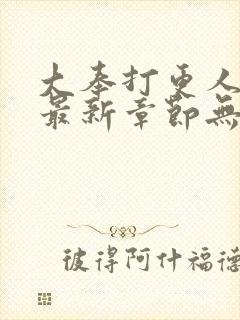 大奉打更人
最新章節無
彼得阿什福德